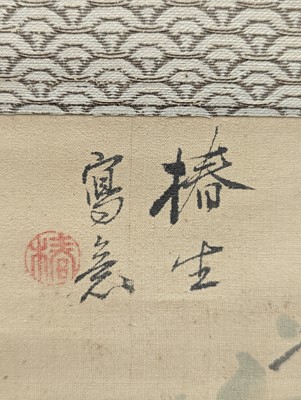 椿生
寫意
椿